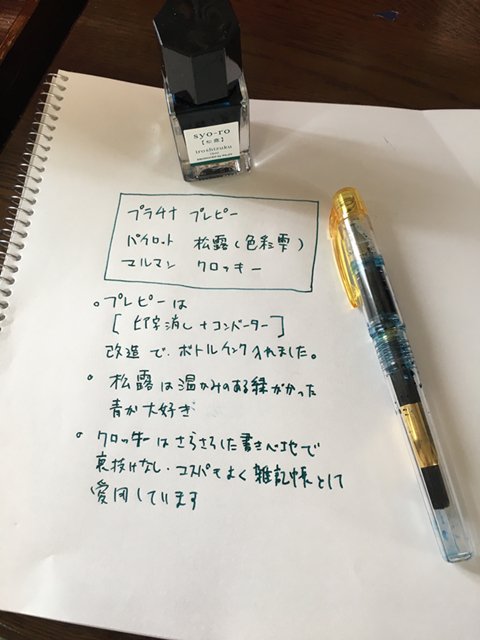 syo-ro
【松露】
iroshizuku
プラチナ プレピー
パイロット 松露(色彩雫)
マルマン クロッキー
。プレピーは
[ 印字消し + コンバーター ]
改造で、ボトルインク入れました。
。松露は温かみのある緑がかった
青が大好き
。クロッキーはさらさらした書き心地で
裏抜けなし・コスパもよく雑記帳として
愛用しています